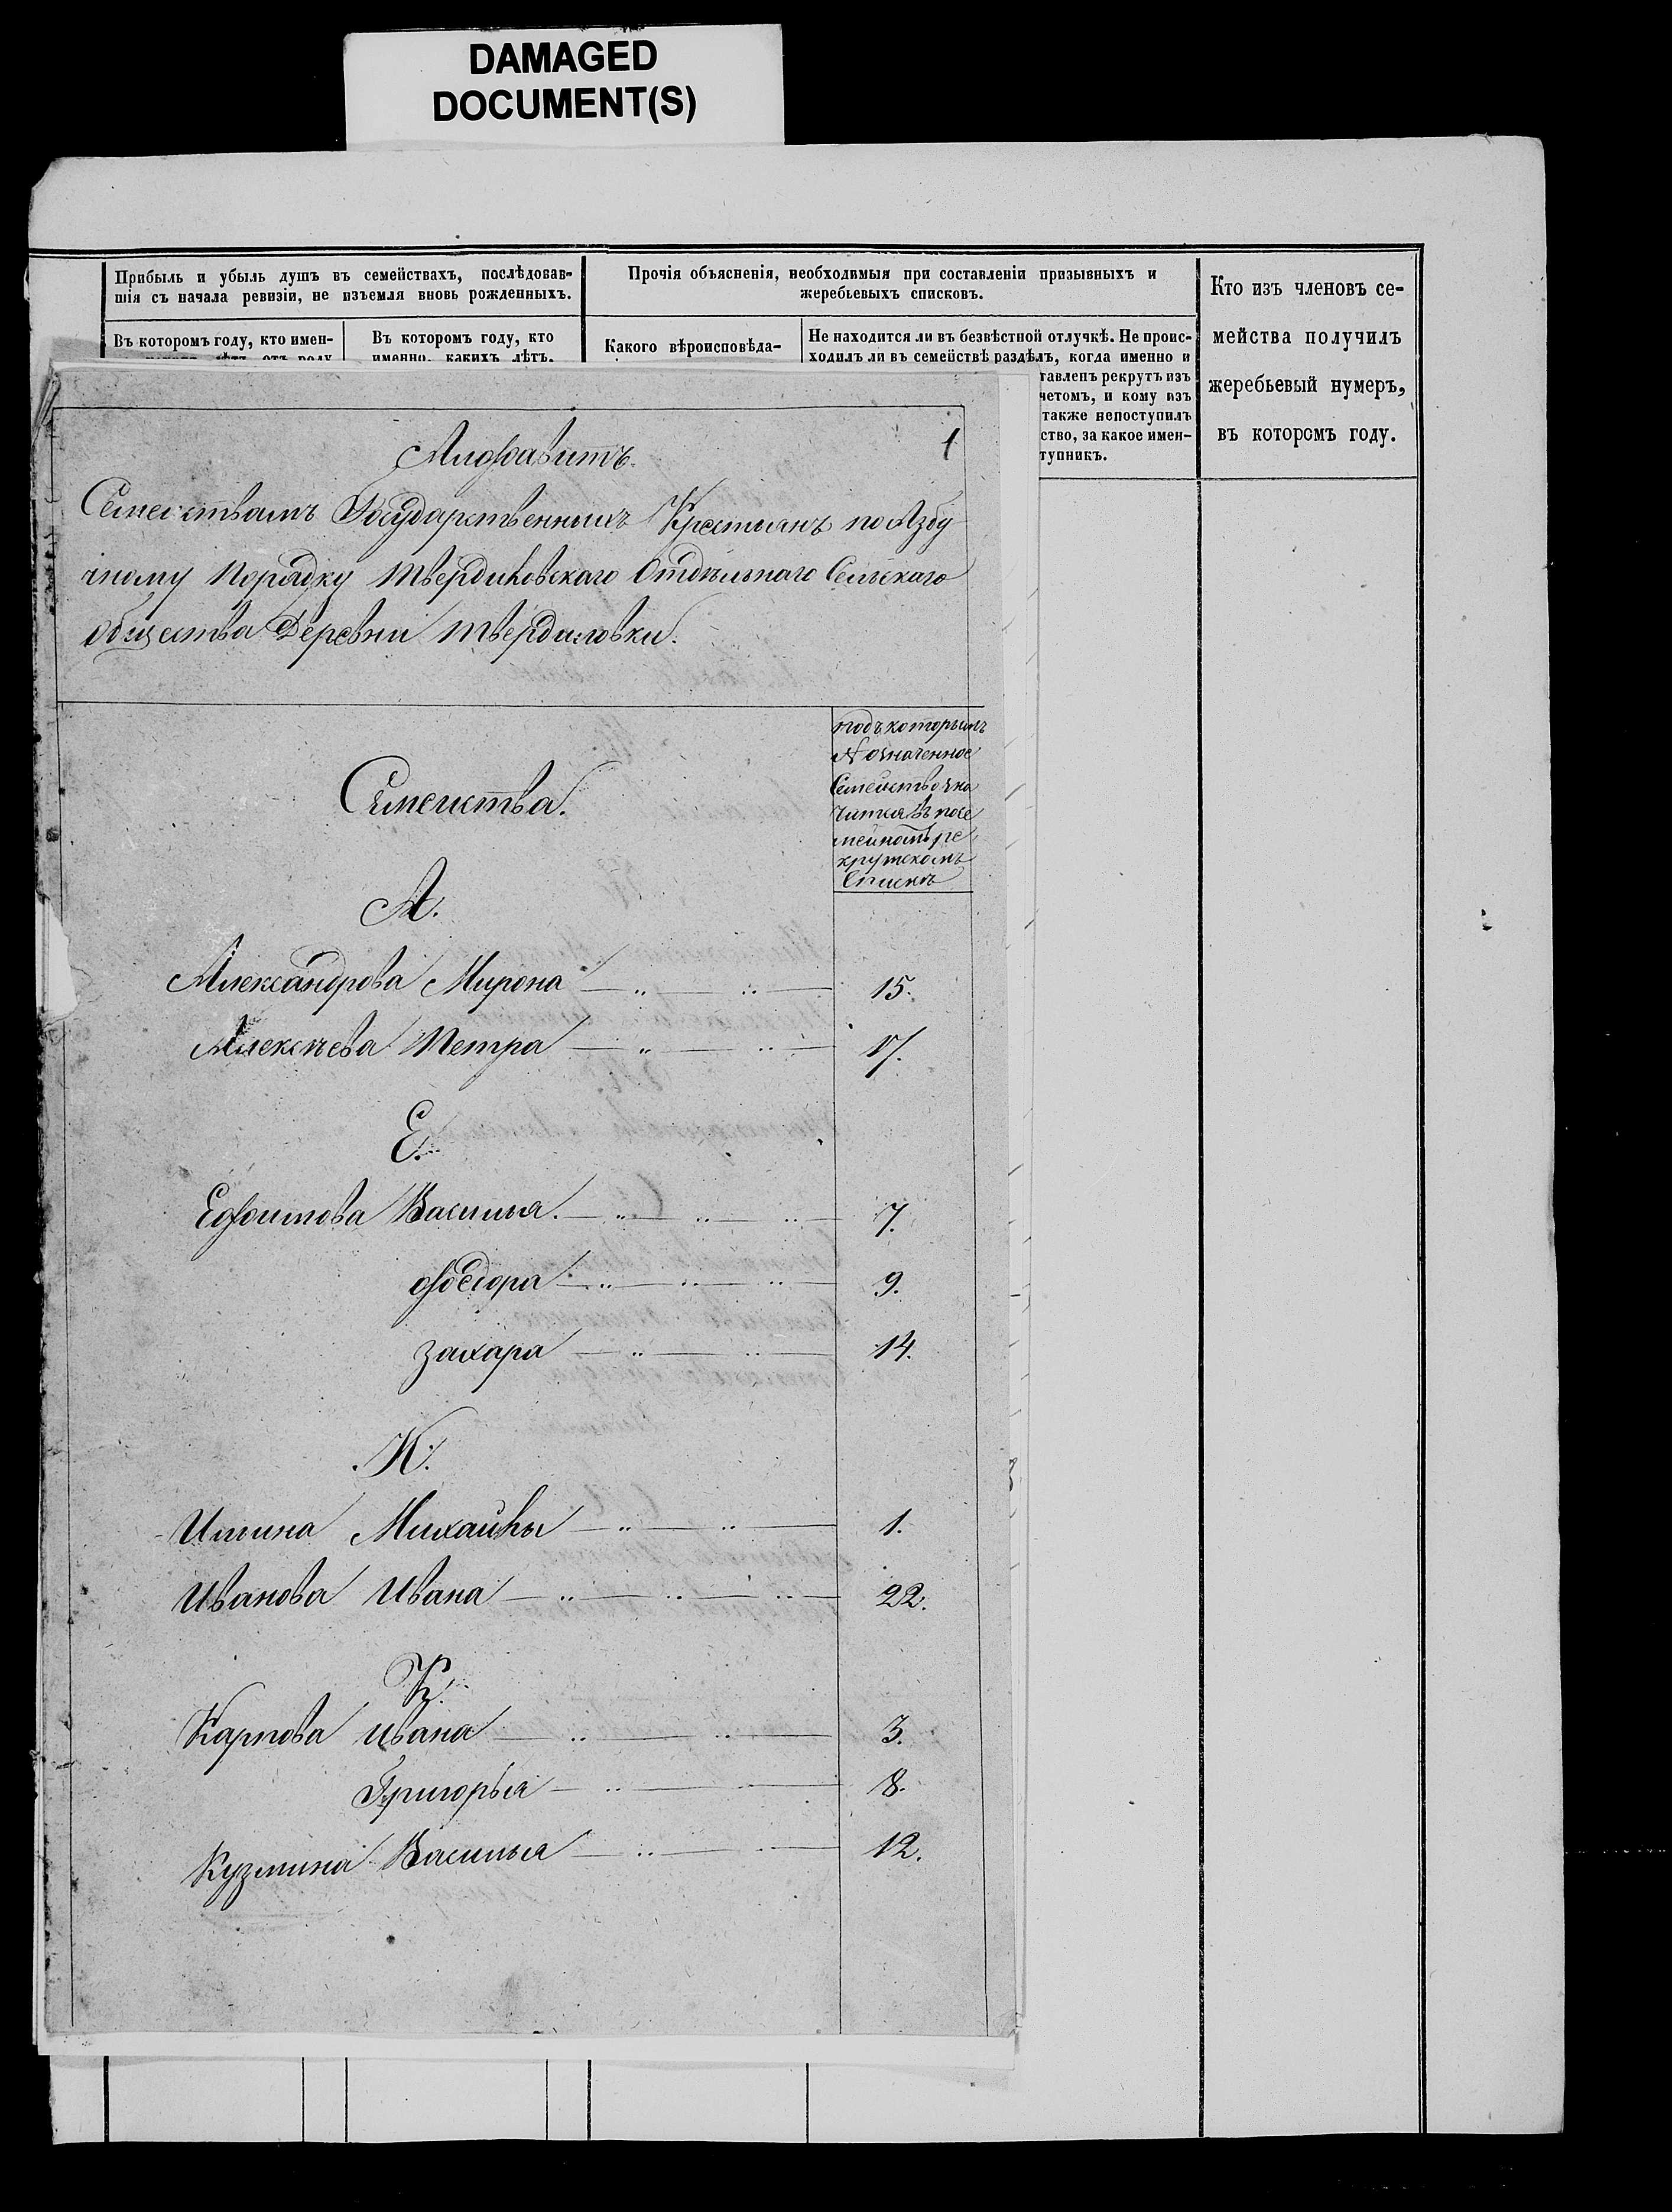 DAMAGED
DOCUMENT(S)
Прибыль и убыль душъ въ семействахъ, послѣдовав-
шія съ начала ревизіи, не изъемля вновь рожденныхъ.
Въ которомъ году, кто имен-
лѣтъ, отъ роду
Въ которомъ году, кто
именно, какихъ лѣтъ.
Прочія объясненія, необходимыя при составленіи призывныхъ и
жеребьевыхъ списковъ.
Какого вѣроисповѣда-
Не находится ли въ безвѣстной отлучкѣ. Не проис-
ходилъ ли въ семействѣ раздѣлъ, когда именно и
тавленъ рекрутъ изъ
четомъ, и кому изъ
также непоступилъ
ство, за какое имен-
тупникъ.
Кто изъ членовъ се-
мейства получилъ
жеребьевый нумеръ,
въ которомъ году.
1
Алфавитъ
Семействамъ Государственныхъ Крестьянъ по Азбу
чному Порядку Твердиловскаго Отдѣльнаго Сельскаго
общества Деревни Твердиловки.
Семейства.
подъ которымъ
№ означенное
Семейство зна
чится въ посе
мейномъ ре
крутскомъ
Спискѣ
А.
Александрова Мирона 15.
Алексѣева Петра 17.
Е.
Ефимова Василья. 7.
Федора 9.
Захара 14.
И.
Ильина Михайлы 1.
Иванова Ивана 22.
К.
Карпова Ивана 3.
Григорья 8.
Кузмина Василья 12.